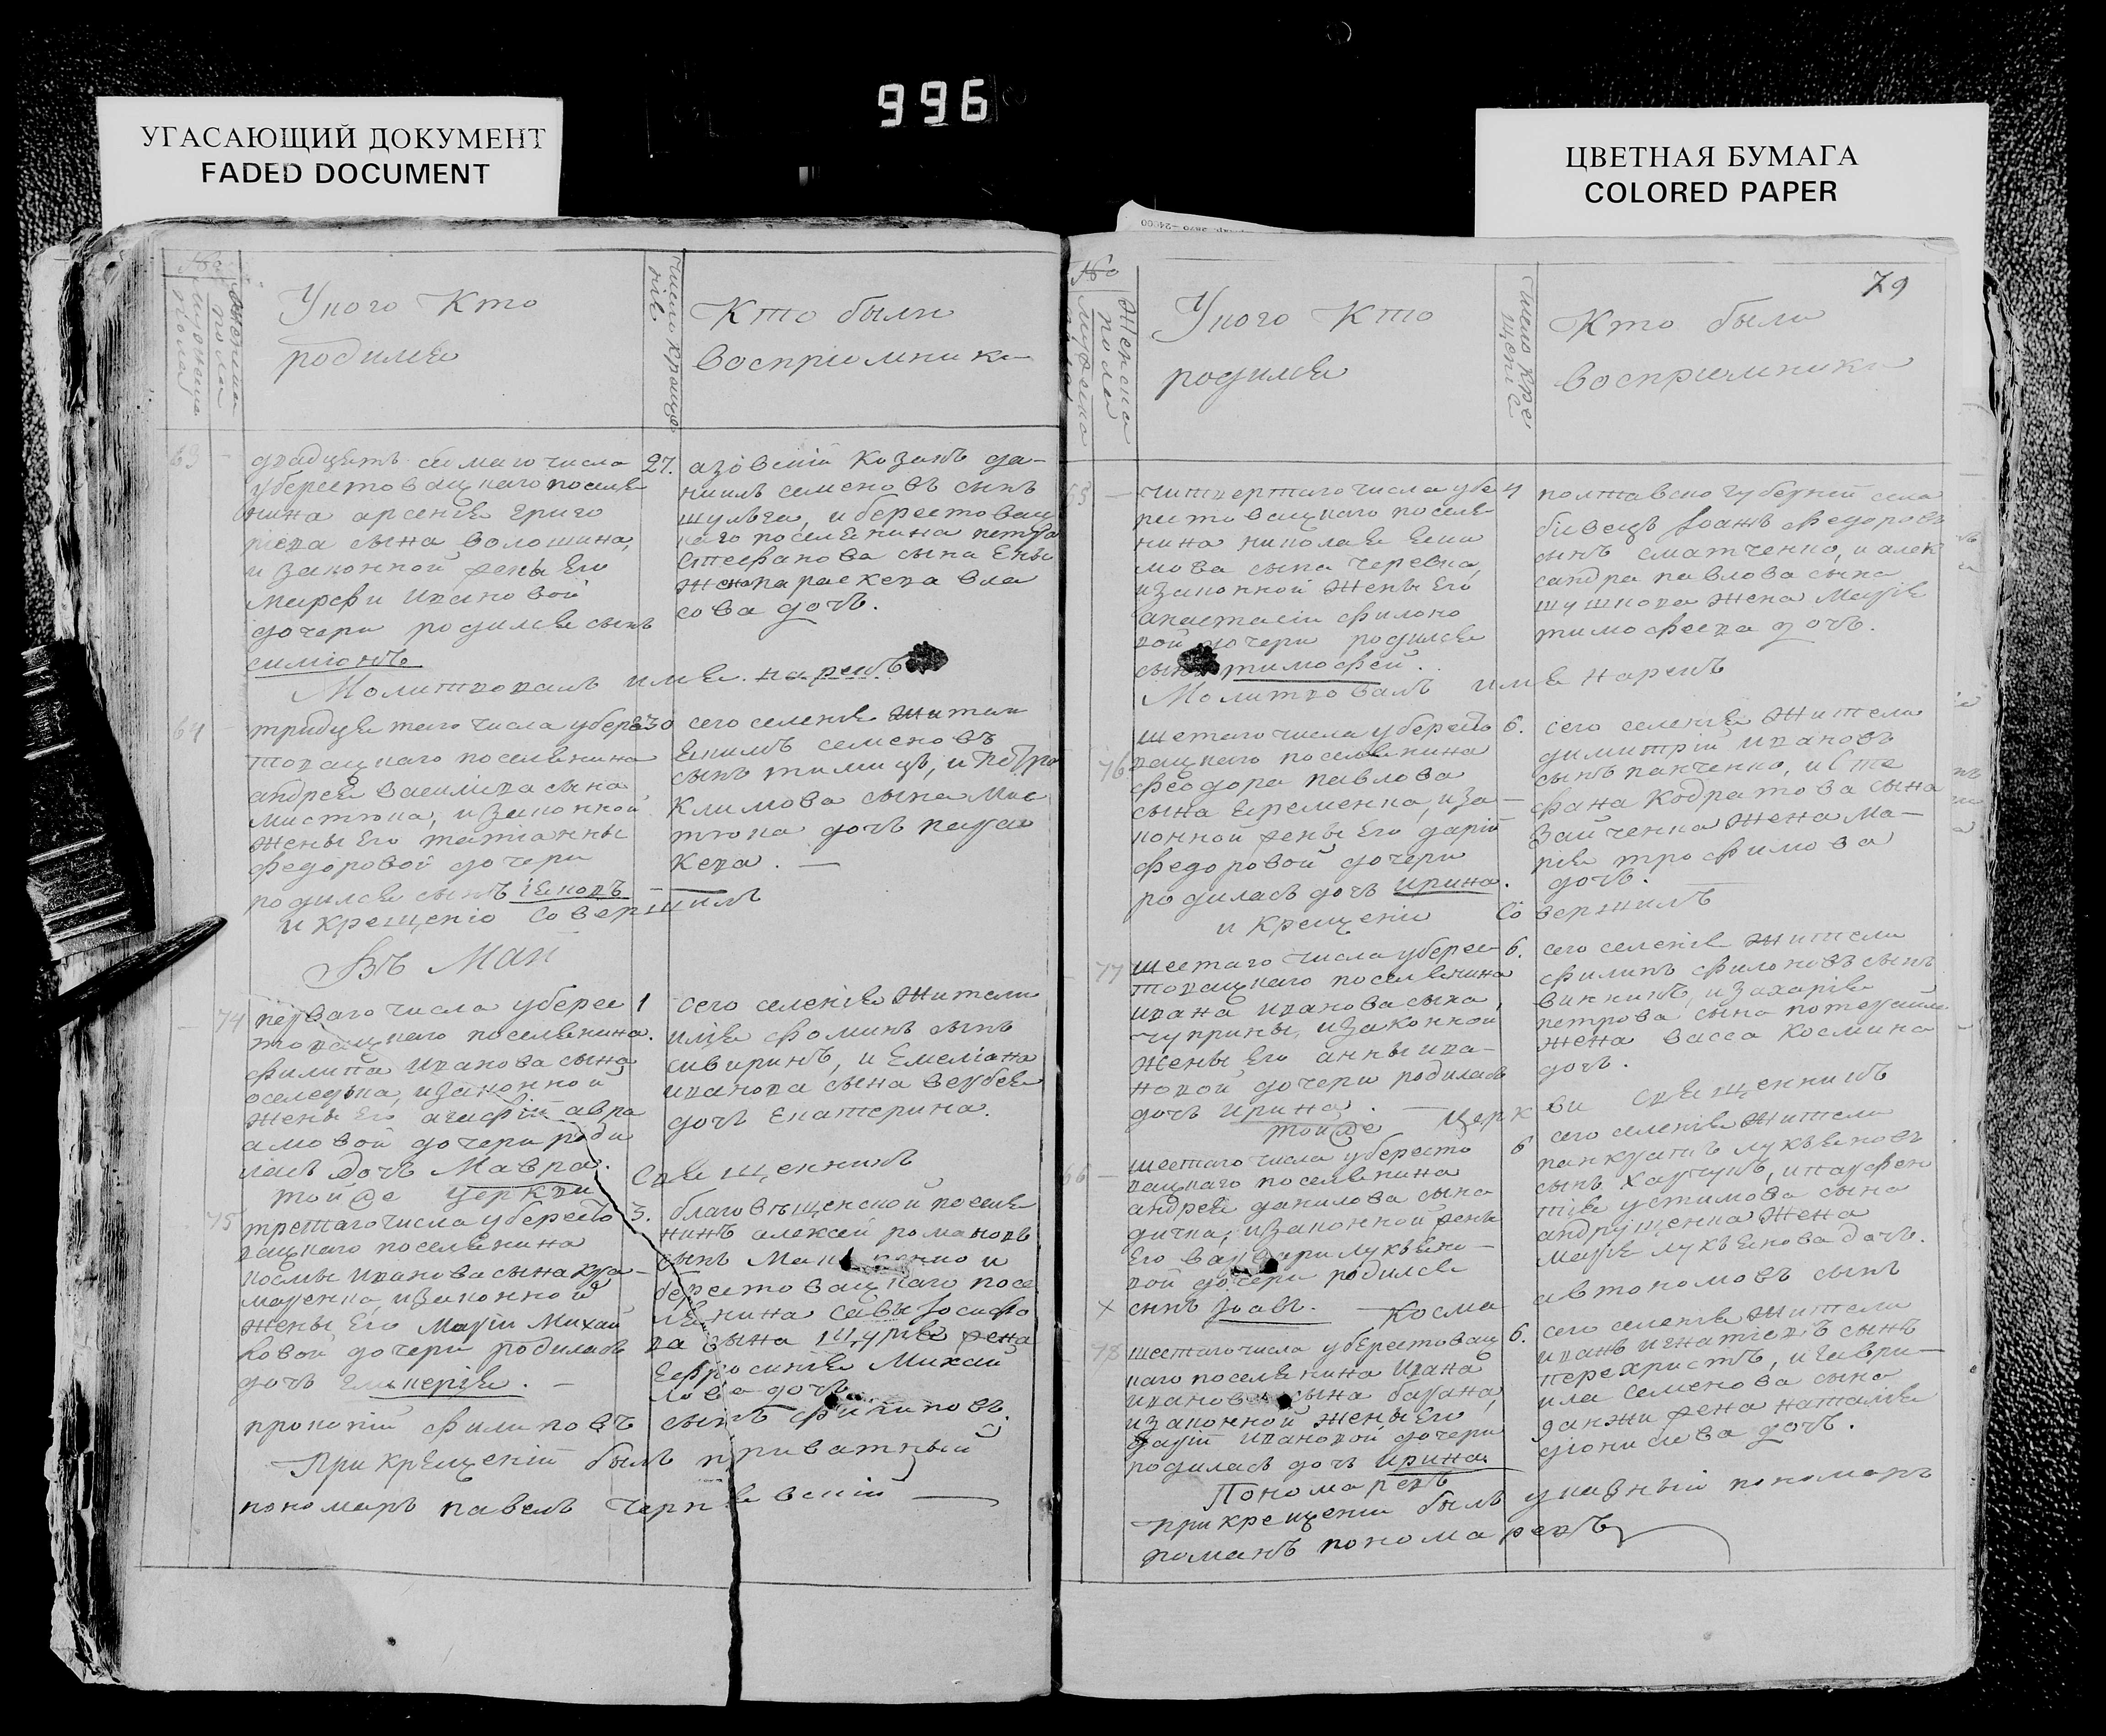 996
УГАСАЮЩИЙ ДОКУМЕНТ
FADED DOCUMENT
ЦВЕТНАЯ БУМАГА
COLORED PAPER
Уного Кто
родился
число крещения
Кто были
восприемники
63
двадцать семаго числа
уберестовацкаго поселя
нина арсения григо
риева сына волошина,
и законной жены Его
марфи ивановой
дочери родился сынъ
симионъ
27.
азовский козакъ да-
ниилъ семеновъ сынъ
шульга, и берестовац
каго поселянина петра
стефанова сына
жена параскева вла
сова дочь.
Молитвовалъ имя нарекъ
64
тридцятаго числа уберес
товацкаго поселянина
андрея василиева сына
мистюка, и законной
жены Его татианны
федоровой дочери
родился сынъ іяковъ
30
сего селения жители
Екимъ семеновъ
сынъ тимицъ, и петра
Климова сына мис
тюка дочь парас
кева.
и крещение совершилъ
Въ Маи
74
первого числа уберес
товацкаго поселянина
филипа иванова сына
оседка, изаконной
жены Его агафии авра
амовой дочери роди
лась дочь Мавра.
1
сего селения жители
илия фоминъ сынъ
сивиринъ, и Емелиана
иванова сына вербея
дочь Екатерина.
тойже церкви Священникъ
75
третаго числа убересто
вацкаго поселянина
космы иванова сына кра-
маренка, изаконной
жены Его марии Михай
ловой дочери родилась
дочь гликерия.
3.
благовещенской поселя
нинъ алексей романовъ
сынъ
берестовацкаго посе
лянина савы Іосифо
ва сына жена
Ефросиния Михай
лова дочь
прокопий филиповъ сынъ филиповъ.
При крещений былъ приватный
пономаръ павелъ чернявский
79
Уного Кто
родился
Кто были
восприемники
65
читвертаго числа убе
рестовацкаго поселя
нина николая Еки
мова сына черевка,
изаконной жены Его
анастасии филоно
вой дочери родился
сынъ тимофей.
4
полтавско губерний села
бивецъ Іоанъ федоровъ
сынъ сматченко, и алек
сандра павлова сына
шушкова жена Мария
тимофеева дочь.
Молитвовалъ имя нарекъ
76
шетаго числа убересто
вацкаго поселянина
феодора павлова
сына Еременка, иза-
конной жены Его дарии
федоровой дочери
родилась дочь ирина.
6.
сего селения жители
димитрий ивановъ
сынъ панченко, и сте
фана Кодратова сына
Зайченка жена Ма-
рия трофимова
дочь.
и крещение совершилъ
77
шестаго числа уберес
товацкаго поселянина
ивана иванова сына,
чуприны, изаконной
жены Его анны ива-
новой дочери родилась
дочь ирина.
6.
сего селения жители
филипъ филоновъ сынъ
винникъ, изахария
петрова сына
жена васса космина
дочь.
тойже церкви священникъ
66
шестаго числа убересто
вацкаго поселянина
андрея данилова сына
дички, изаконной жены
Его варвари лукьяно-
вой дочери родился
сынъ Іоавъ.
6
сего селения жители
панкратъ лукьяновъ
сынъ харчукъ, и парфен
тия устимова сына
андрущенка жена
мария лукьянова дочь.
Косма автономовъ сынъ
78
шестаго числа уберестовац
каго поселянина ивана
иванова сына барана,
изаконной жены Его
дарии ивановой дочери
родилась дочь ирина
6.
сего селения жители
иванъ игнатиевъ сынъ
перехристъ, и гаври-
ила семенова сына
данжи жена наталия
дионисиева дочь.
Пономаревъ
при крещении былъ указный пономаръ
романъ пономаревъ